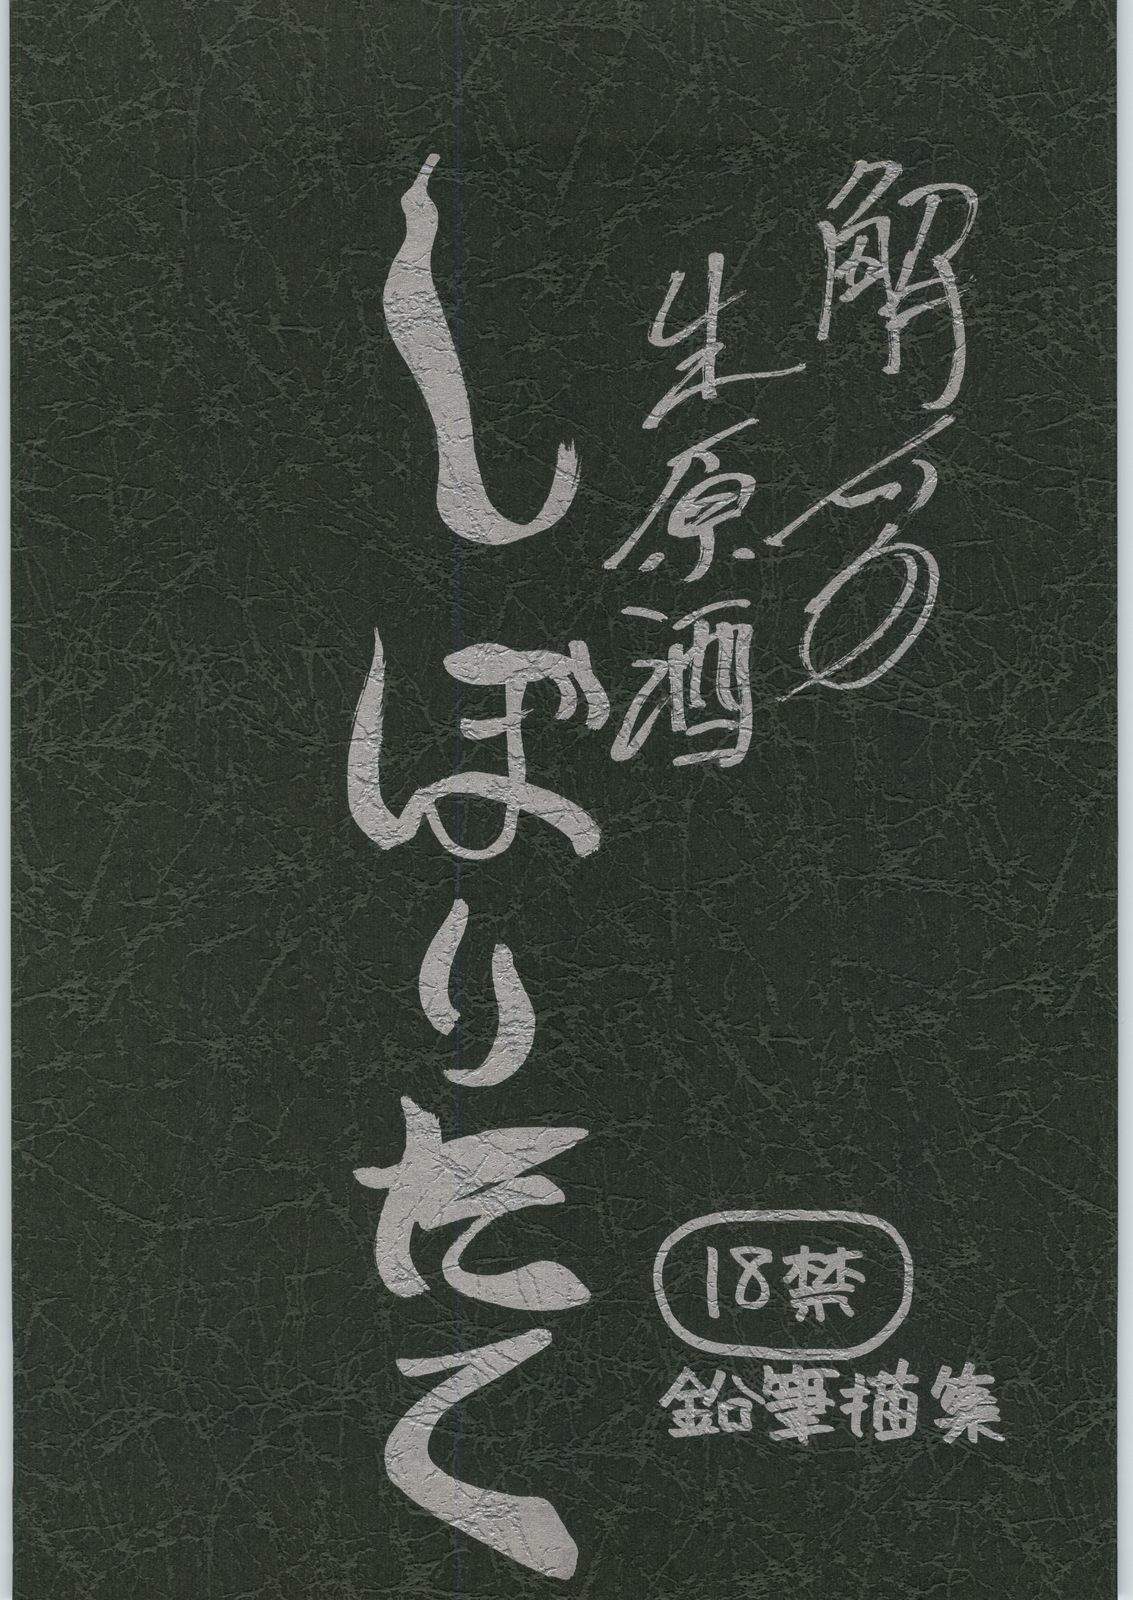 解
生原酒
しぼりたて
18禁
鉛筆描集